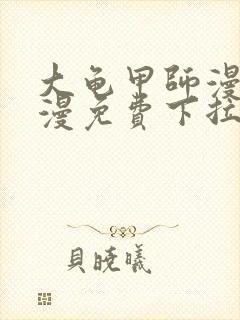 大龟甲師漫
漫免費下拉
貝曉曦